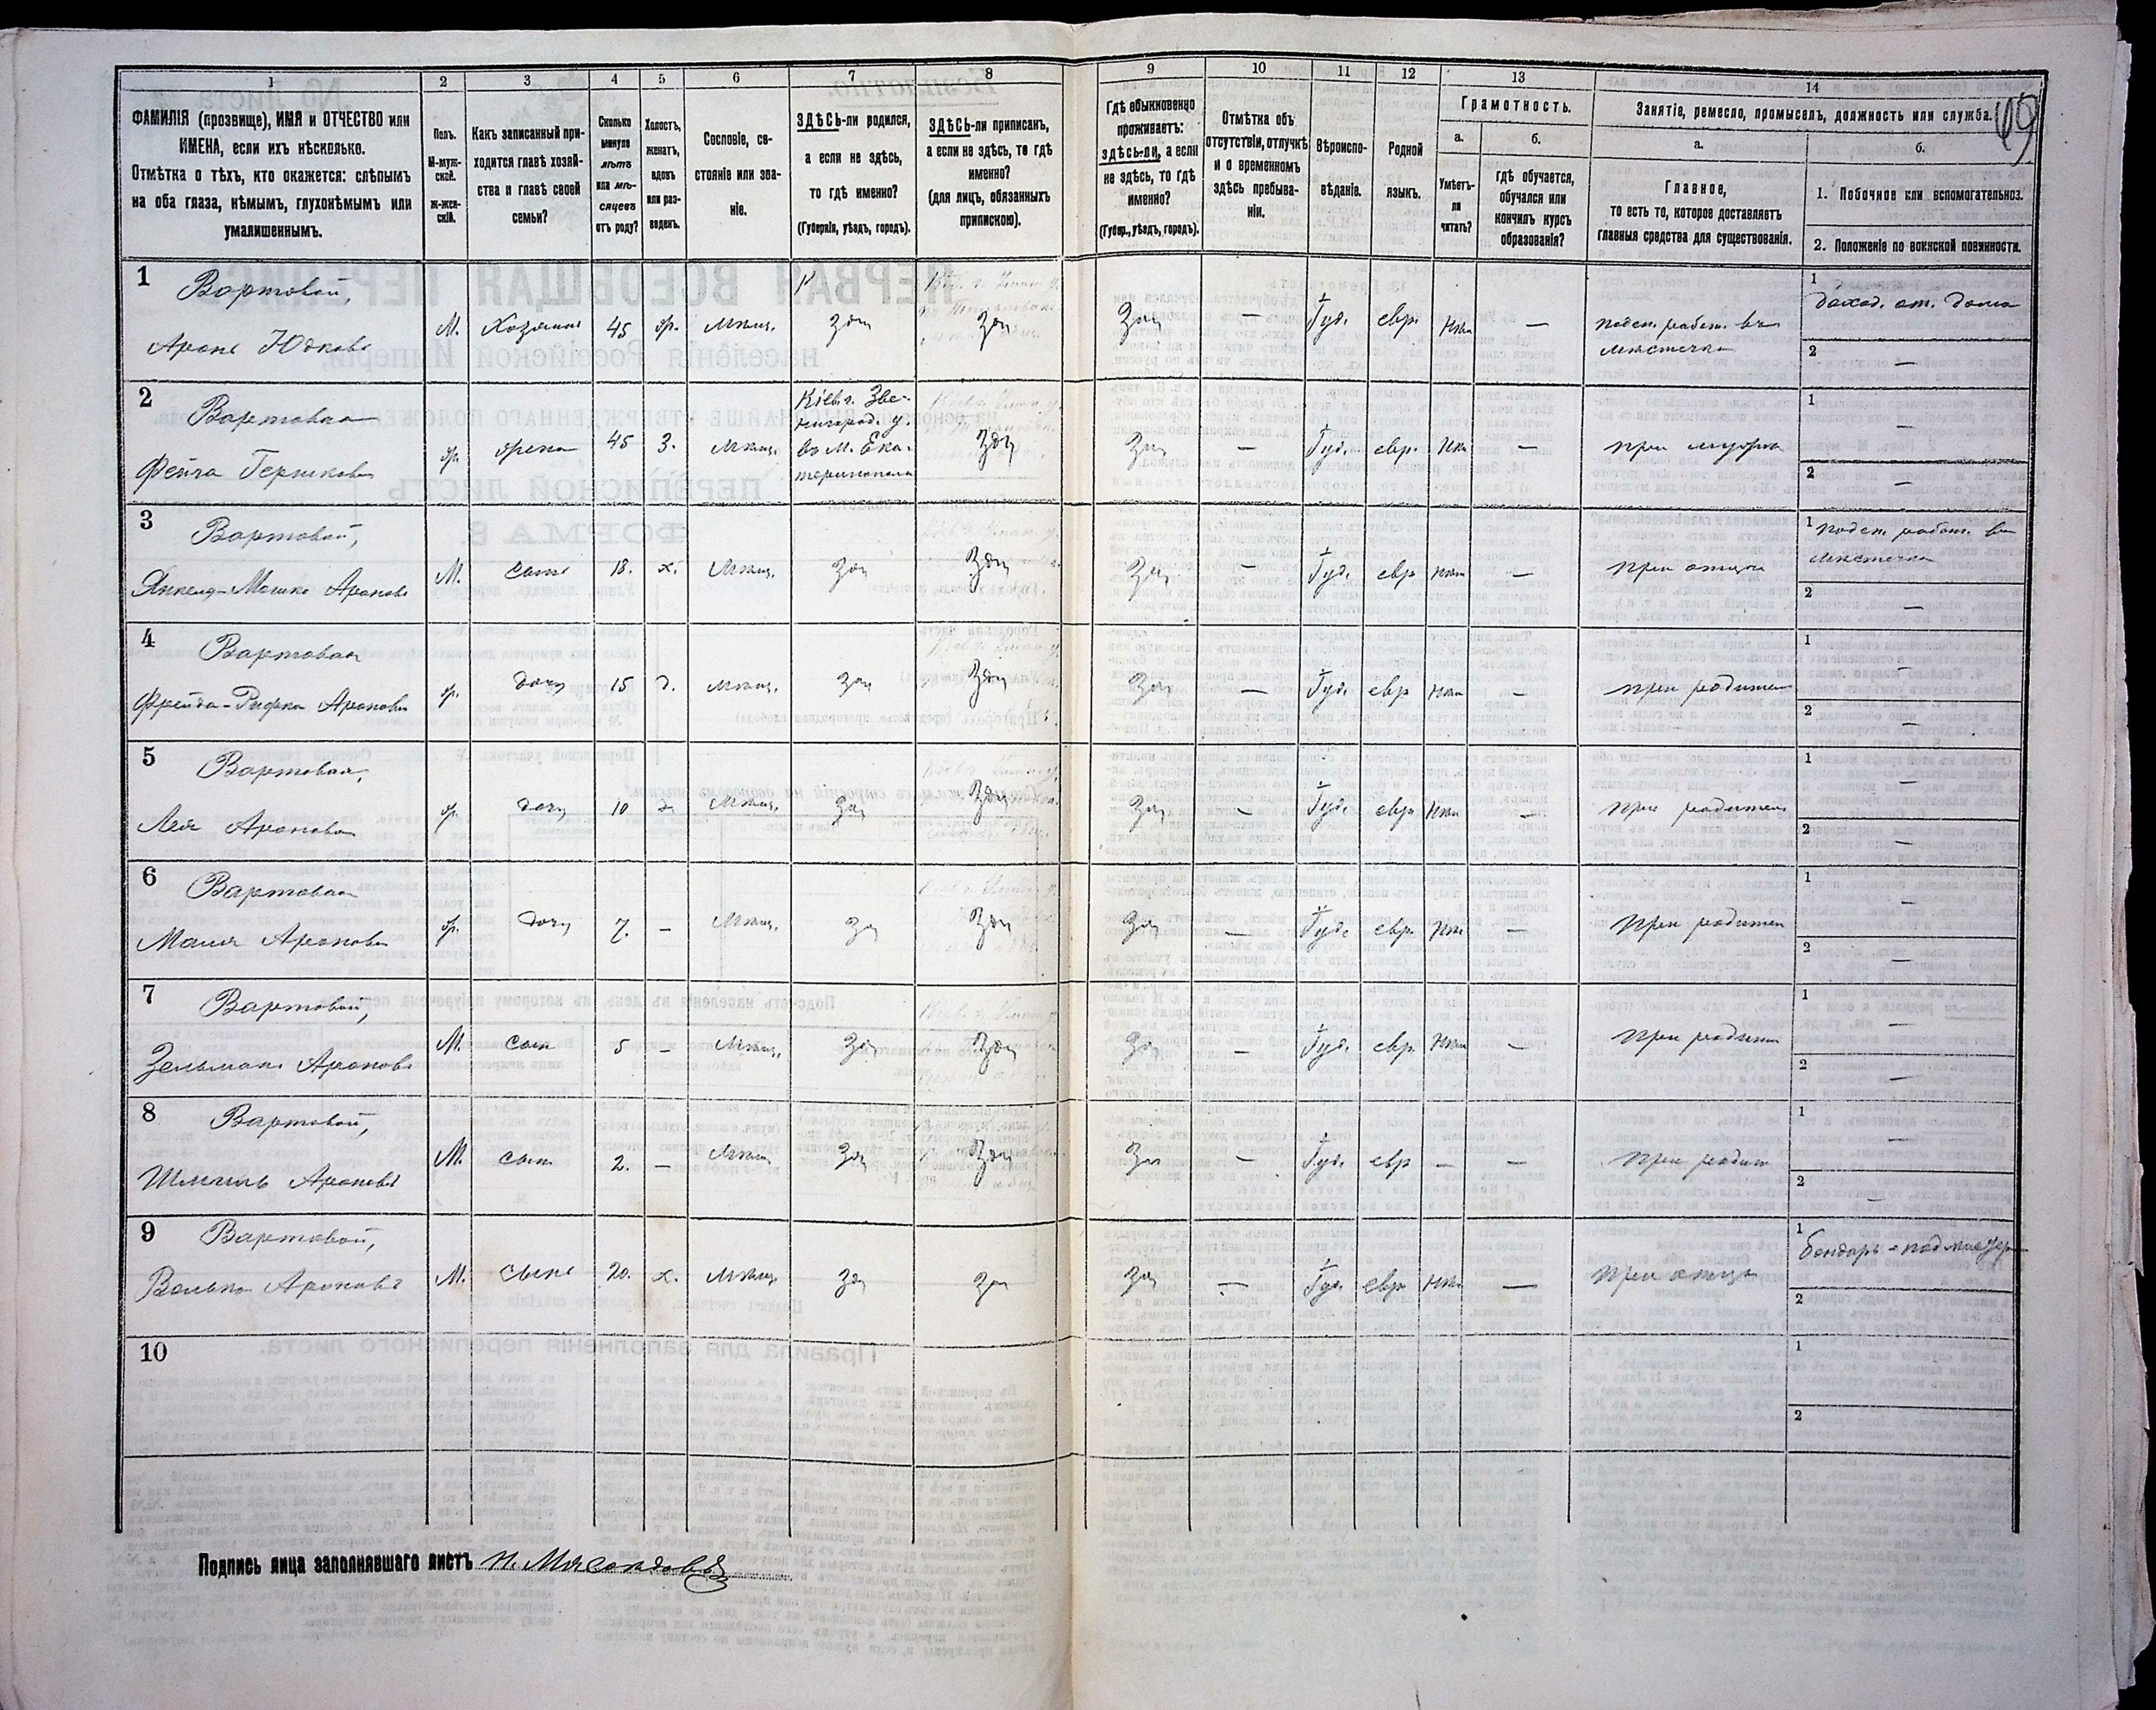 1 2 3 4 5 6 7 8 9 10 11 12 13 14
ФАМИЛІЯ (прозвище), ИМЯ и ОТЧЕСТВО или
ИМЕНА, если ихъ нѣсколько.
Отмѣтка о тѣхъ, кто окажется: слѣпымъ
на оба глаза, нѣмымъ, глухонѣмымъ или
умалишеннымъ.
Полъ.
М-муж-
ской.
ж-жен-
скій.
Какъ записанный при-
ходится главѣ хозяй-
ства и главѣ своей
семьи?
Сколько
минуло
лѣтъ
или мѣ-
сяцевъ
отъ роду?
Холостъ,
женатъ,
вдовъ
или раз-
веденъ.
Сословіе, со-
стояніе или зва-
ніе.
ЗДѢСЬ-ли родился,
а если не здѣсь,
то гдѣ именно?
(Губернія, уѣздъ, городъ).
ЗДѢСЬ-ли приписанъ,
а если не здѣсь, то гдѣ
именно?
(для лицъ, обязанныхъ
припискою).
Гдѣ обыкновенно
проживаетъ:
здѣсь-ли, а если
не здѣсь, то гдѣ
именно?
(Губер., уѣздъ, городъ).
Отмѣтка объ
отсутствіи, отлучкѣ
и о временномъ
здѣсь пребыва-
ніи.
Вѣроиспо-
вѣданіе.
Родной
языкъ.
Грамотность.
а.
Умѣетъ-
ли
читать?
б.
гдѣ обучается,
обучался или
кончилъ курсъ
образованія?
Занятіе, ремесло, промыселъ, должность или служба.
а.
Главное,
то есть то, которое доставляетъ
главныя средства для существованія.
б.
1. Побочное или вспомогательное.
2. Положеніе по воинской повинности.
69
1 Вартовой,
Аронъ Юдковъ
М. Хозяинъ 45 жр. мѣщ. здѣ здѣ здѣ — Іуд. евр. нѣт —
поден. работ. въ
мѣстечкѣ
1 доход. от. дома
2 —
2 Вартовая
Фейга Гершкова
ж. жена 45 з. мѣщ.
Кіев. г. Зве-
нигород. у.
въ М. Ека-
теринополѣ
здѣ здѣ — Іуд. евр. нѣт при мужѣ
1 —
2 —
3 Вартовой,
Янкель-Мошко Ароновъ
М. сынъ 18. х. мѣщ. здѣ здѣ здѣ — Іуд. евр нѣт — при отцѣ
1 поден. работ. въ
мѣстечкѣ
2 —
4 Вартовая
Фрейда-Рифка Аронова
ж. дочь 15 д. мѣщ. здѣ здѣ здѣ — Іуд. евр нѣт — при родител
1 —
2 —
5 Вартовая,
Лея Аронова
ж. дочь 10 д мѣщ. здѣ здѣ здѣ — Іуд. евр нѣт — при родител
1 —
2 —
6 Вартовая
Маля Аронова
ж. дочь 7. — мѣщ. здѣ здѣ здѣ — Іуд. евр. нѣт — при родител
1 —
2 —
7 Вартовой,
Зельманъ Ароновъ
М. сын 5 — мѣщ. здѣ здѣ здѣ — Іуд. евр. нѣт — при родит
1 —
2 —
8 Вартовой,
Ароновъ
М. сын 2. — мѣщ здѣ здѣ здѣ — Іуд. евр — — при родит
1 —
2 —
9 Вартовой,
Волько Ароновъ
М. сынъ 20. х. мѣщ. здѣ здѣ здѣ — Іуд. евр. нѣт — при отцѣ
1 бондарь-подмастер
2
10
1
2
Подпись лица заполнявшаго листъ Н. Мясоѣдовъ